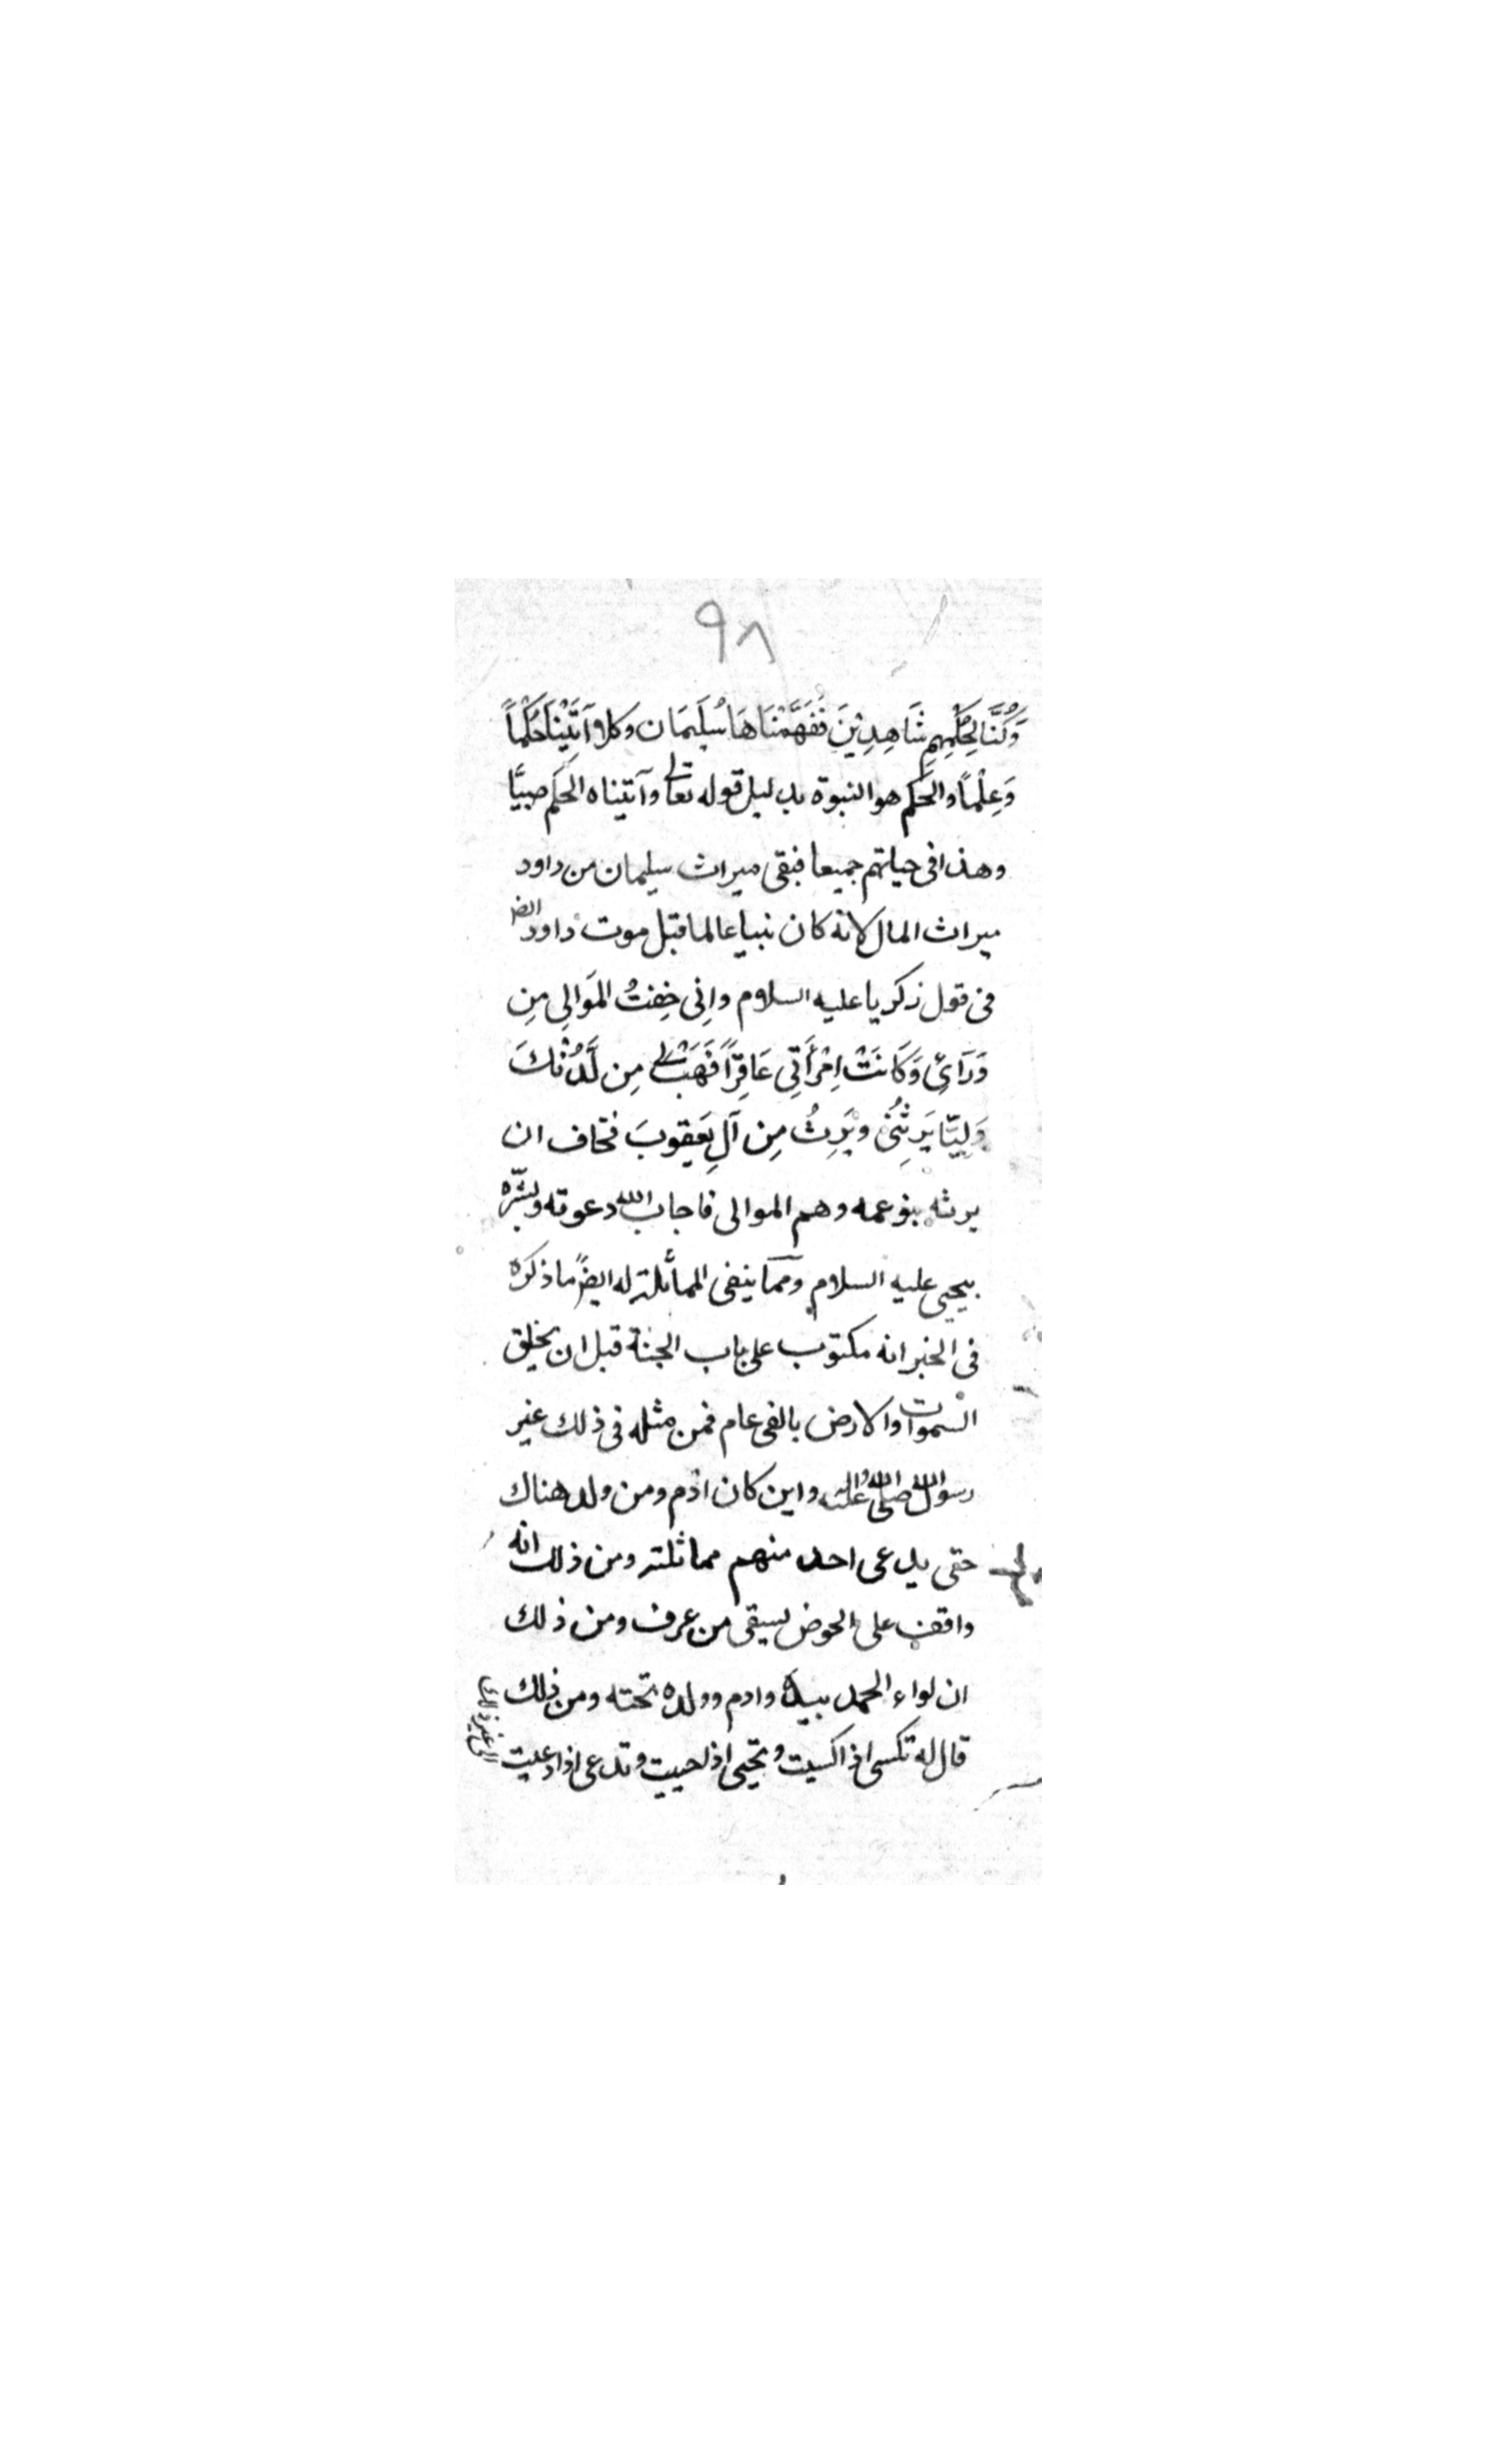 ٩٨
وَكُنَّا لِحُكْمِهِم شَاهِدِيْنَ فَفَهَّمْنَاهَا سُلَيمَان وكلا وآتَيْنَا حُكْماً
وَعِلْماً والحكم هو النبوة بدليل قوله تعالى وآتيناه الحكم صبيًّا
وهذا في حياتهم جميعا فبقي ميراث سليمان من داود
ميراث المال لانه كان نبيا عالما قبل موت داود ايضا
في قول زكريا عليه السلام وإني خِفتُ المَوَالِي مِن
وَرَائِ وَكَانَتْ اِمْرَأَتِي عَاقِرًا فَهَبْ لي مِن لَّدُنْكَ
وَلِيّا يَرِثُنى ويَرِثُ مِن آلِ يَعقوبَ فخاف ان
يرثه بنو عمه وهم الموالى فاجاب الله دعوته وبشّره
بيحيى عليه السلام ومما ينفى المماثلة له ايضاً ما ذكره
فى الخبر انه مكتوب على باب الجنة قبل ان يخلق
السموات والارض بالفى عام فمن مثله فى ذلك غير
رسول الله صلى الله عليه واله واين كان ادم ومن ولد هناك
حتى يدعى احد منهم مماثلته ومن ذلك انه
واقف على الحوض يسقى من عرف ومن ذلك
ان لواء الحمد بيده وادم وولده تحته ومن ذلك
قال له تكسى اذا كسيت وتحيى اذا حييت وتدعى اذا دعيت
الى غير ذلك